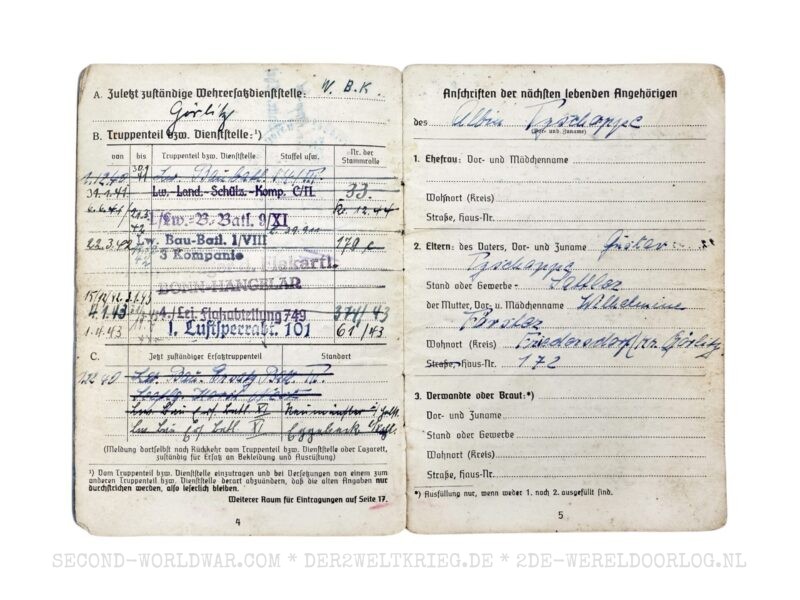 A. Zuletzt zuständige Wehrersatzdienststelle: W. B. K.
Görlitz
B. Truppenteil bzw. Dienststelle:¹)
von bis Truppenteil bzw. Dienststelle Staffel usw. Nr. der Stammrolle
1.12.40
31.1.41 Lw.-Land.-Schütz.-Komp. C/II. 33.
/Lw.-B.-Batl. 9/XI
Lw. Bau-Batl. I/VIII 170
3 Kompanie
BONN-HANGELAR
4.1.43 4./Lei. Flakabteilung 749 374/43
1.4.43 1. Luftsperrabt. 101 61/43
C. Jetzt zuständiger Ersatztruppenteil Standort
Lw. Bau Ers. Batl. XI Neumünster
Lw Bau Ers Batl XI Eggebeck
(Meldung dortselbst nach Rückkehr vom Truppenteil bzw. Dienststelle oder Lazarett,
zuständig für Ersatz an Bekleidung und Ausrüstung)
¹) Vom Truppenteil bzw. Dienststelle einzutragen und bei Versetzungen von einem zum
anderen Truppenteil bzw. Dienststelle derart abzuändern, daß die alten Angaben nur
durchstrichen werden, also leserlich bleiben.
Weiterer Raum für Eintragungen auf Seite 17.
4
Anschriften der nächsten lebenden Angehörigen
des Albin Tzschoppe
(Vor- und Zuname)
1. Ehefrau: Vor- und Mädchenname
Wohnort (Kreis)
Straße, Haus-Nr.
2. Eltern: des Vaters, Vor- und Zuname Gustav
Tzschoppe
Stand oder Gewerbe Sattler
der Mutter, Vor- u. Mädchenname Wilhelmine
Förster
Wohnort (Kreis) Friedersdorf Kr. Görlitz
Straße, Haus-Nr. 172
3. Verwandte oder Braut:*)
Vor- und Zuname
Stand oder Gewerbe
Wohnort (Kreis)
Straße, Haus-Nr.
*) Ausfüllung nur, wenn weder 1. noch 2. ausgefüllt sind.
5
SECOND-WORLDWAR.COM * DER2WELTKRIEG.DE * 2DE-WERELDOORLOG.NL